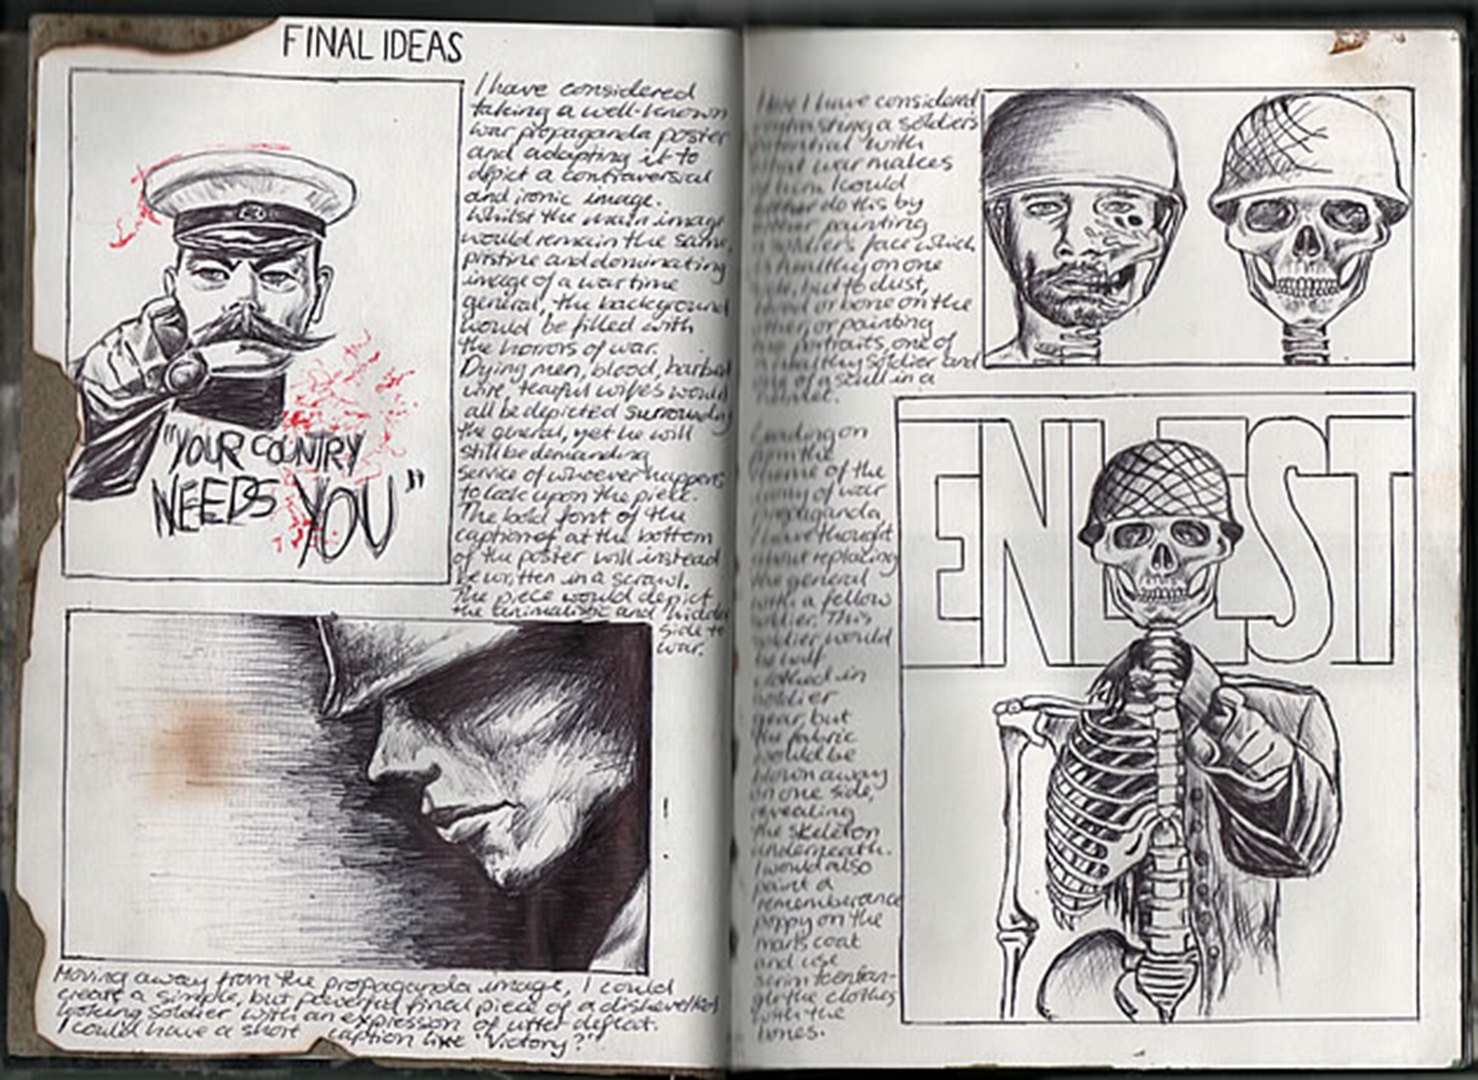 FINAL IDEAS
I have considered
taking a well-known
war propaganda poster
and adapting it to
depict a contraversial
and ironic image.
Whilst the main image
would remain the same,
pristine and dominating
image of a wartime
general, the background
would be filled with
the horrors of war.
Dying men, blood, barbed
wire, tearful wifes would
all be depicted surrounding
the general, yet he will
still be demanding
service of whoever happens
to look upon the piece.
The bold font of the
caption at the bottom
of the poster will instead
be written in a scrawl.
The piece would depict
the animalistic and hidden
side to
war.
"YOUR COUNTRY
NEEDS YOU"
Moving away from the propaganda image, I could
create a simple, but powerful final piece of a dishevelled
looking soldier with an expression of utter defeat.
I could have a short caption like "Victory?"
I have considered
contrasting a soldiers
potential with
what war makes
of him. I could
either do this by
either painting
a soldiers face which
is healthy on one
side, but to dust,
blood or bone on the
other, or painting
two portraits, one of
a healthy soldier and
one of a scull in a
helmet.
Leading on
from the
theme of the
irony of war
propaganda,
I have thought
about replacing
the general
with a fellow
soldier. This
soldier would
be half
clothed in
soldier
gear, but
the fabric
would be
blown away
on one side,
revealing
the skeleton
underneath.
I would also
paint a
rememberance
poppy on the
man's coat
and use
to entan-
gle the clothes
with the
bones.
ENLIST